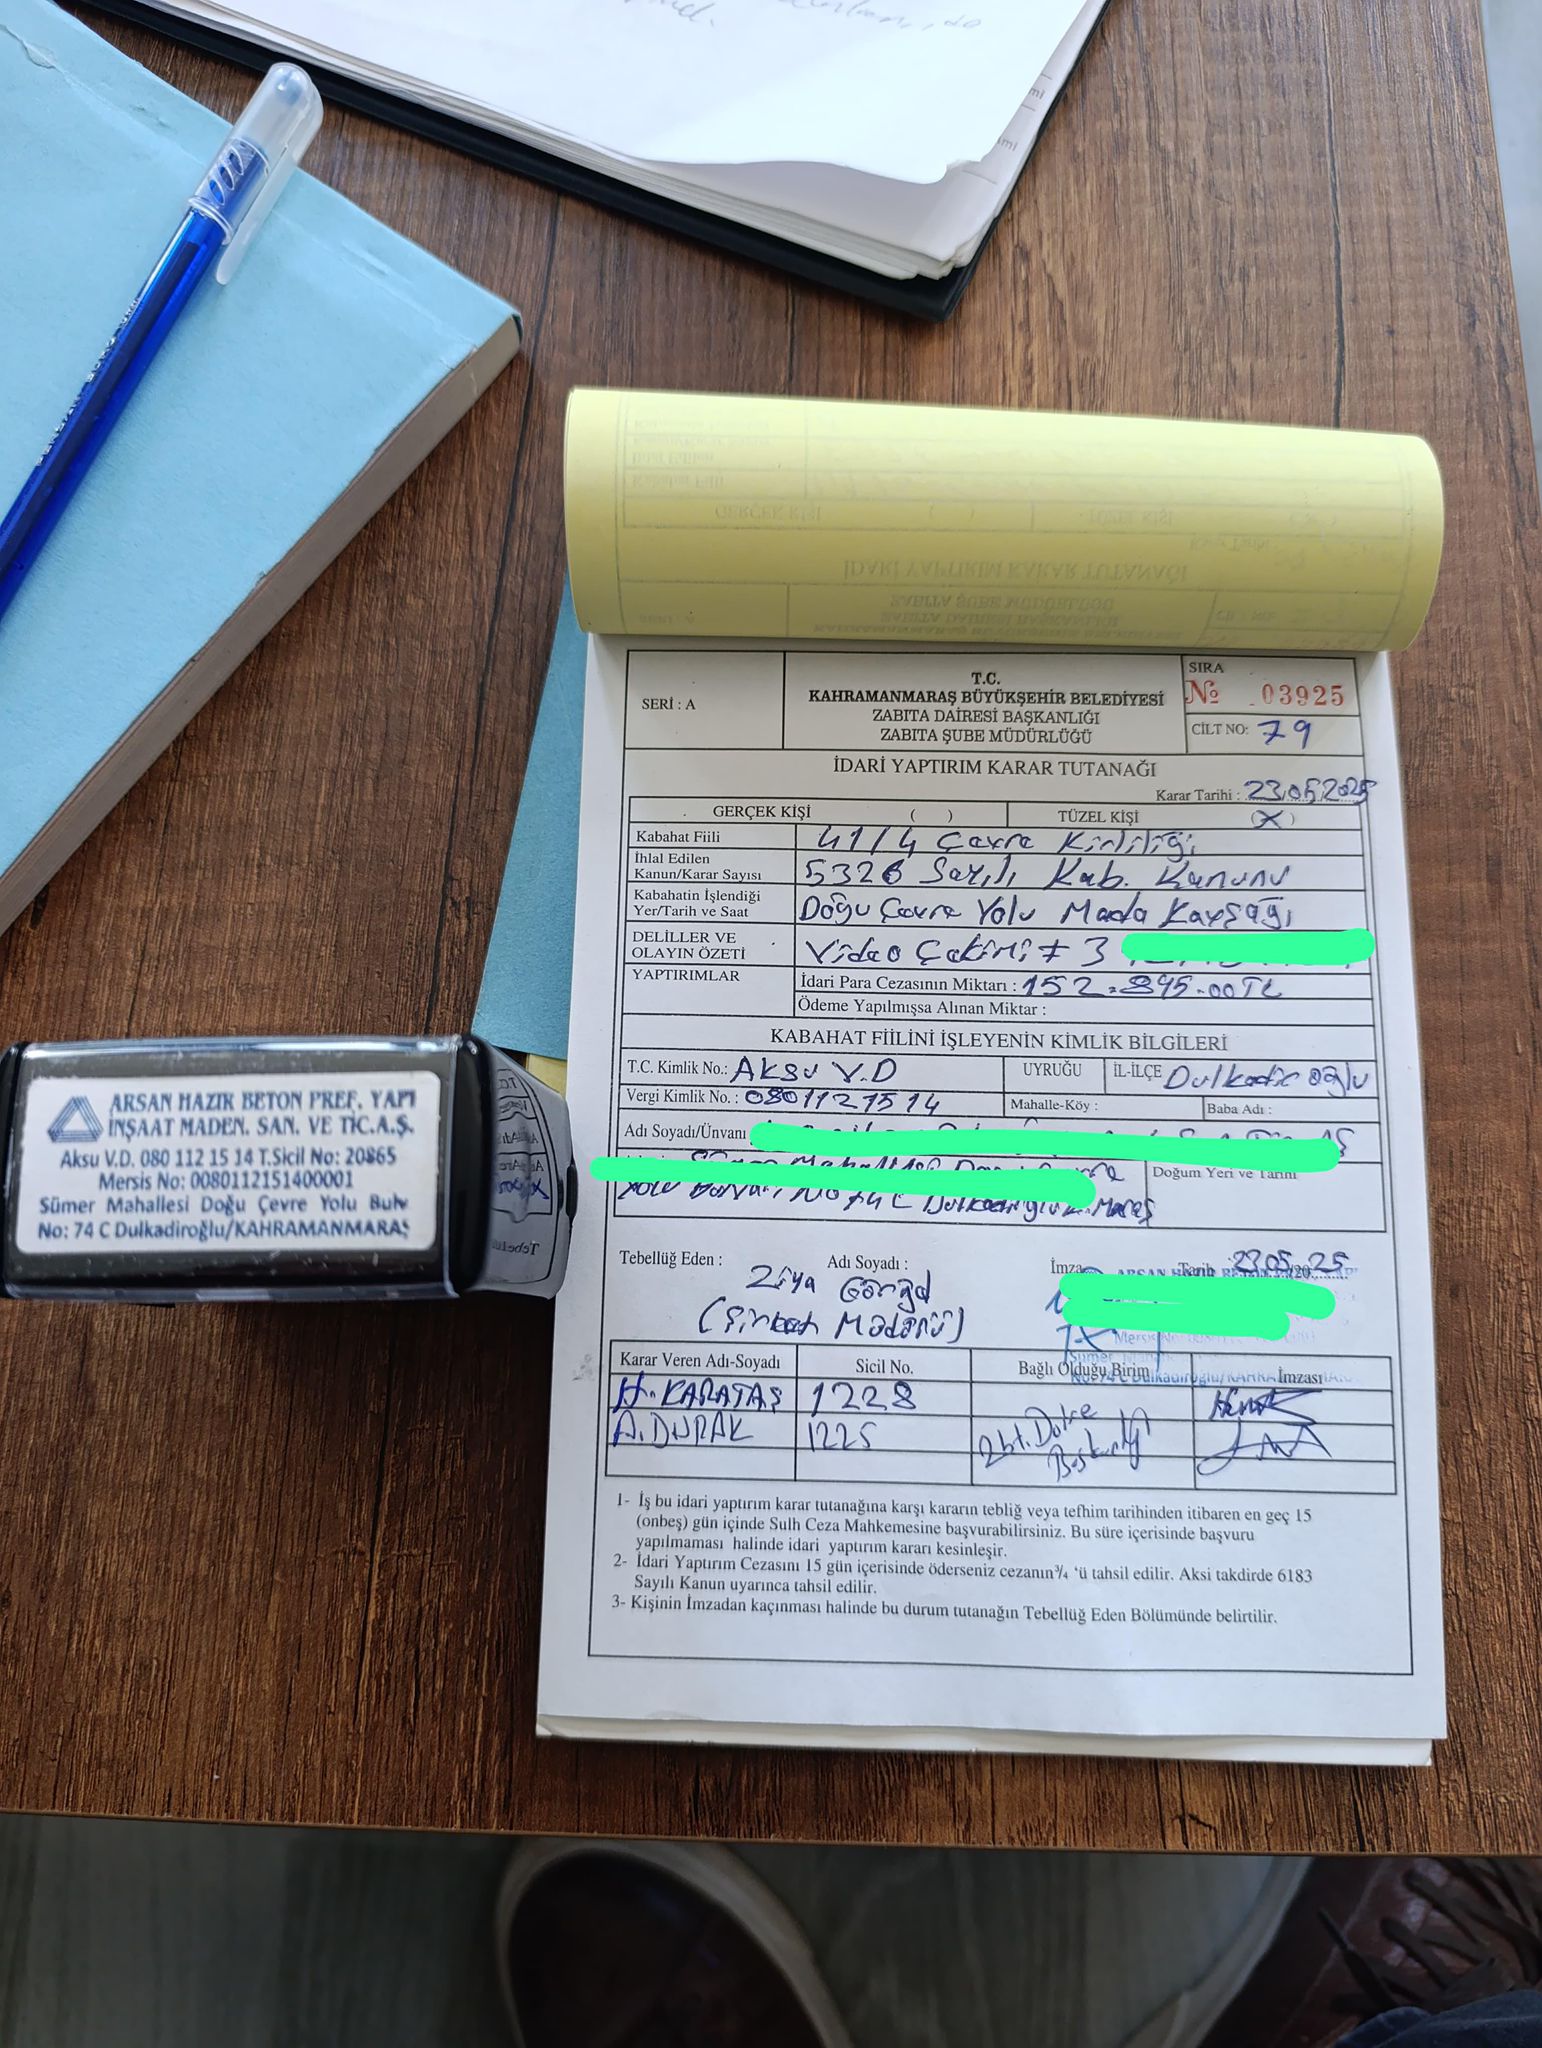 T.C.
KAHRAMANMARAŞ BÜYÜKŞEHİR BELEDİYESİ
ZABITA DAİRESİ BAŞKANLIĞI
ZABITA ŞUBE MÜDÜRLÜĞÜ
SERİ : A
SIRA
№ 03925
CİLT NO: 79
İDARİ YAPTIRIM KARAR TUTANAĞI
Karar Tarihi : 23/05/2025
GERÇEK KİŞİ ( ) TÜZEL KİŞİ (X)
Kabahat Fiili 41/4 Çevre Kirliliği
İhlal Edilen
Kanun/Karar Sayısı 5326 Sayılı Kab. Kanunu
Kabahatin İşlendiği
Yer/Tarih ve Saat Doğu Çevre Yolu Mada Kavşağı
DELİLLER VE
OLAYIN ÖZETİ Video Çekimi 3
YAPTIRIMLAR İdari Para Cezasının Miktarı : 152.895.00 TL
Ödeme Yapılmışsa Alınan Miktar :
KABAHAT FİİLİNİ İŞLEYENİN KİMLİK BİLGİLERİ
T.C. Kimlik No.: Aksu V.D UYRUĞU İL-İLÇE Dulkadiroğlu
Vergi Kimlik No. : 0801121514 Mahalle-Köy : Baba Adı :
Adı Soyadı/Ünvanı
Doğum Yeri ve Tarihi
Dulkadiroğlu K.Maraş
Tebellüğ Eden : Adı Soyadı : İmza Tarih 23.05/2025
Ziya
(Şirket Müdürü)
Karar Veren Adı-Soyadı Sicil No. Bağlı Olduğu Birim İmzası
H. KARATAŞ 1228
A. DURAK 1225 Zbt. Daire
Başkanlığı
1- İş bu idari yaptırım karar tutanağına karşı kararın tebliğ veya tefhim tarihinden itibaren en geç 15
(onbeş) gün içinde Sulh Ceza Mahkemesine başvurabilirsiniz. Bu süre içerisinde başvuru
yapılmaması halinde idari yaptırım kararı kesinleşir.
2- İdari Yaptırım Cezasını 15 gün içerisinde öderseniz cezanın ¾ 'ü tahsil edilir. Aksi takdirde 6183
Sayılı Kanun uyarınca tahsil edilir.
3- Kişinin İmzadan kaçınması halinde bu durum tutanağın Tebellüğ Eden Bölümünde belirtilir.
ARSAN HAZIR BETON PREF. YAPI
İNŞAAT MADEN. SAN. VE TİC.A.Ş.
Aksu V.D. 080 112 15 14 T.Sicil No: 20865
Mersis No: 0080112151400001
Sümer Mahallesi Doğu Çevre Yolu Bulv
No: 74 C Dulkadiroğlu/KAHRAMANMARAŞ